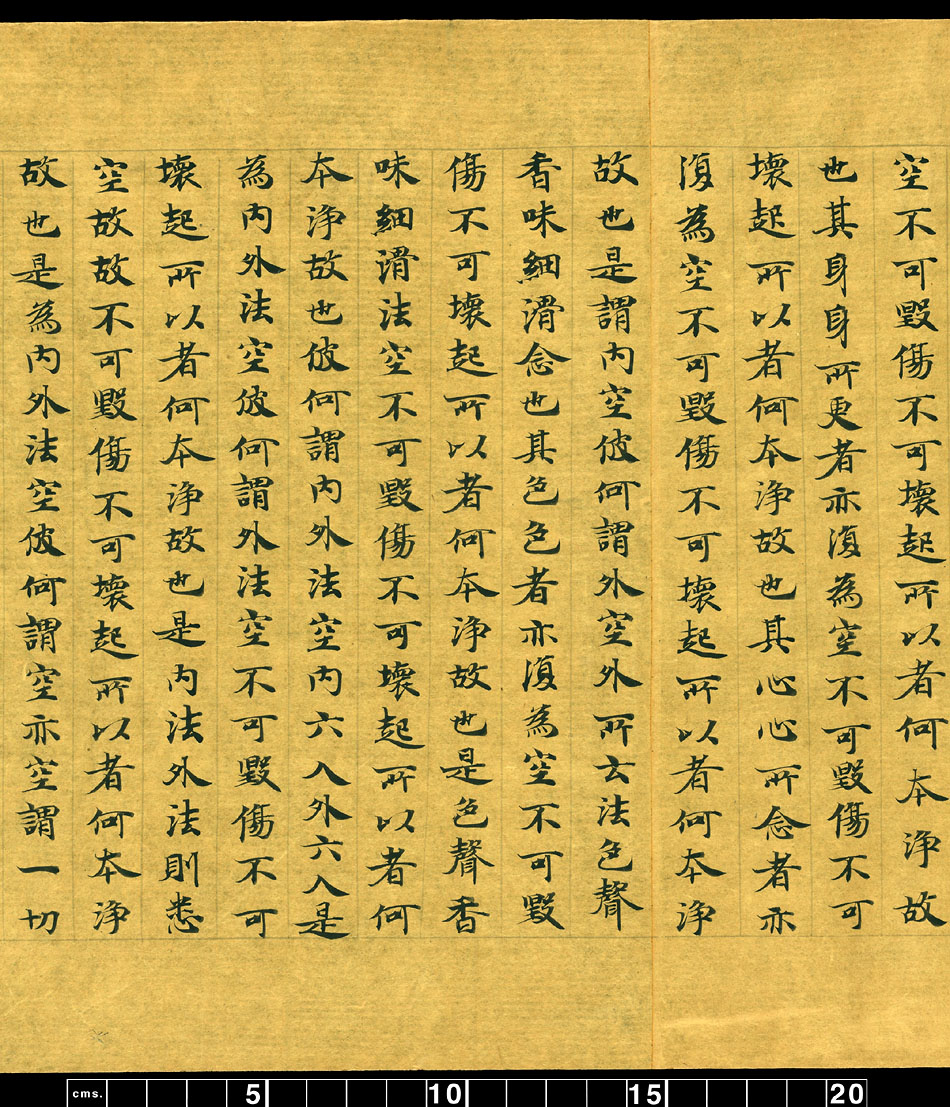 空不可毀傷不可壞起所以者何本淨故
也其身身所更者亦復為空不可毀傷不可
壞起所以者何本淨故也其心心所念者亦
復為空不可毀傷不可壞起所以者何本淨
故也是謂内空彼何謂外空外所云法色聲
香味細滑念也其色色者亦復為空不可毀
傷不可壞起所以者何本淨故也是色聲香
味細滑法空不可毀傷不可壞起所以者何
本淨故也彼何謂内外法空内六入外六入是
為内外法空彼何謂外法空不可毀傷不可
壞起所以者何本淨故也是内法外法則悉
空故故不可毀傷不可壞起所以者何本淨
故也是為内外法空彼何謂空亦空謂一切
cms. 5 10 15 20